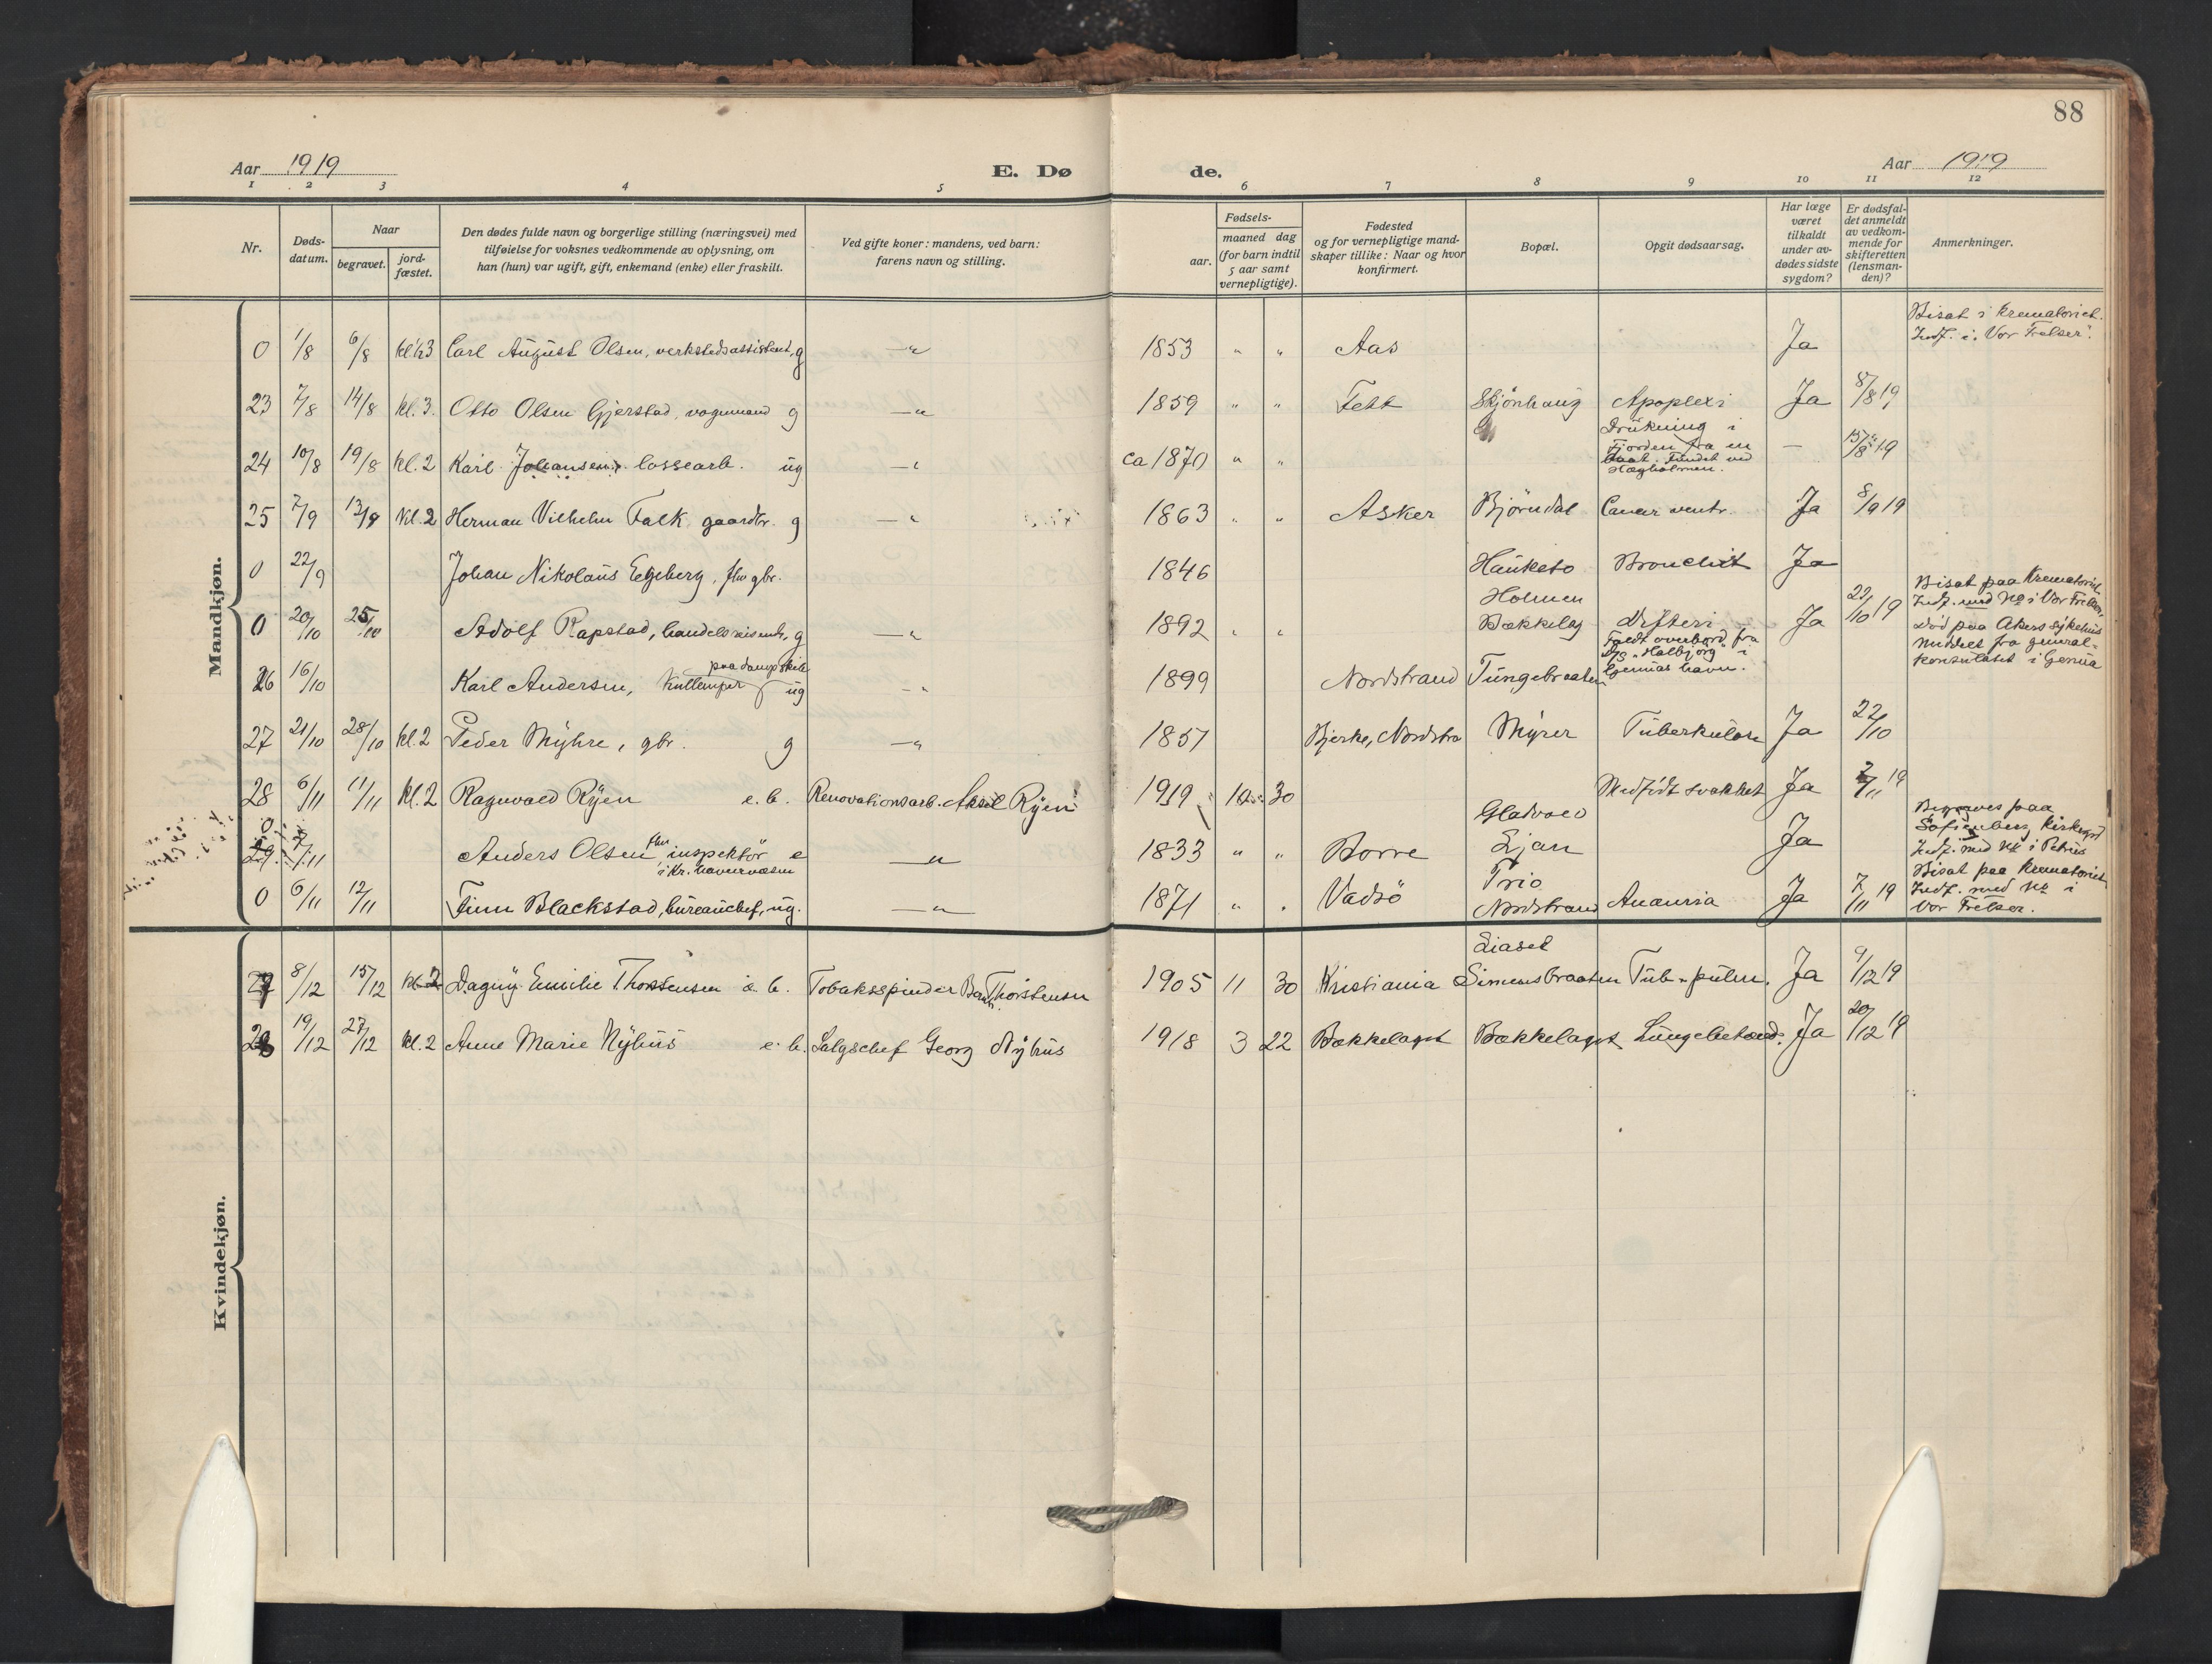 88
Aar 1919
E. Dø
de.
Aar 1919
1 2 3 4 5 6 7 8 9 10 11 12
Nr.
Døds-
datum.
Naar
begravet.
jord-
fæstet.
Den dødes fulde navn og borgerlige stilling (næringsvei) med
tilføielse for voksnes vedkommende av oplysning, om
han (hun) var ugift, gift, enkemand (enke) eller fraskilt.
Ved gifte koner: mandens, ved barn:
farens navn og stilling.
Fødsels-
aar.
maaned dag
(for barn indtil
5 aar samt
vernepligtige).
Fødested
og for vernepligtige mand-
skaper tillike: Naar og hvor
konfirmert.
Bopæl.
Opgit dødsaarsag.
Har læge
været
tilkaldt
under av-
dødes sidste
sygdom?
Er dødsfal-
det anmeldt
av vedkom-
mende for
skifteretten
(lensman-
den)?
Anmerkninger.
Mandkjøn.
0 1/8 6/8 Carl August Olsen, verkstedsassistent, g —"— 1853 " " Aas Ja
Bisat i krematoriet.
Indf. i "Vor Frelser".
23 7/8 14/8 kl. 3. Otto Olsen Gjerstad, vognmand g —"— 1859 " " Fett Skjönhaug Apoplexi Ja 8/8 19
24 10/8 19/8 kl. 2 Karl Johansen, lossearb. ug —"— ca 1870 " "
Drukning i
Fjorden fra en
baat. Fundet ved
Hægholmen.
— 15/8 19
25 7/9 13/9 kl. 2 Herman Vilhelm Falk gaardbr. g —"— 1863 " " Asker Björndal Cancer ventr. Ja 8/9 19
0 22/9 Johan Nikolaus Egeberg, fhv gbr. 1846 Hauketo Bronchit Ja
0 20/10 25/10 Adolf Rapstad, handelsreisende, g —"— 1892 " "
Holmen
Bækkelag
Difteri Ja 22/10 19
Bisat paa Krematoriet.
Indf. med No i Vor Frelser,
død paa Akers sykehus
26 16/10 Karl Andersen, kullemper paa dampskib ug —"— 1899 Nordstrand Tungebraaten
Faldt overbord fra
D/S "Halbjörg" i
Genuas havn.
meddelt fra general-
konsulatet i Genua
27 21/10 28/10 kl. 2 Peder Myhre, gbr. g —"— 1857 Bjerke, Nordstra Myrer Tuberkulose Ja 22/10
28 6/11 11/11 kl. 2 Ragnvald Ryen e. b. Renovationsarb. Aksel Ryen 1919 10 30 Medfödt svakhet Ja 7/11 19
0
29 7/11 Anders Olsen fhv. inspektör e —"— 1833 " " Borre
i Kr. havnevæsen
Gladvold
Ljan
Ja
Begraves paa
Sofienberg kirkegrd
Indf. med No i Petrus
0 6/11 12/11 Finn Blackstad, bureauchef, ug. —"— 1871 " " Vadsö
Trio
Nordstrand
Anæmia Ja 7/11 19
Bisat paa krematoriet
Indf. med No i
Vor Frelser.
Kvindekjøn.
27 8/12 15/12 kl. 2 Dagny Emilie Thorstensen e. b. Tobakspinder Thorstensen 1905 11 30 Kristiania
Liaset
Simensbraaten
Tub. pulm. Ja 9/12 19
28 19/12 27/12 kl. 2 Anne Marie Nyhus e. b. Salgschef Georg Nyhus 1918 3 22 Bækkelaget Bækkelaget Lungebetænd. Ja 20/12 19